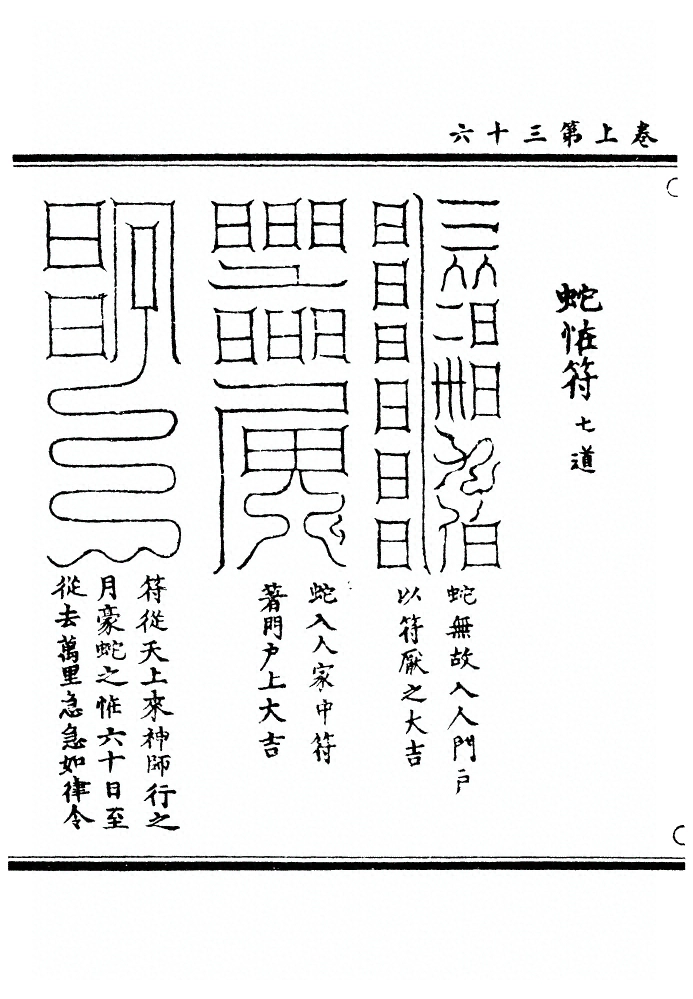 卷上第三十六
蛇恠符七道
蛇無故入人門戶
以符厭之大吉
蛇入人家中符
著門戶上大吉
符從天上來神師行之
月豪蛇之恠六十日至
從去萬里急急如律令